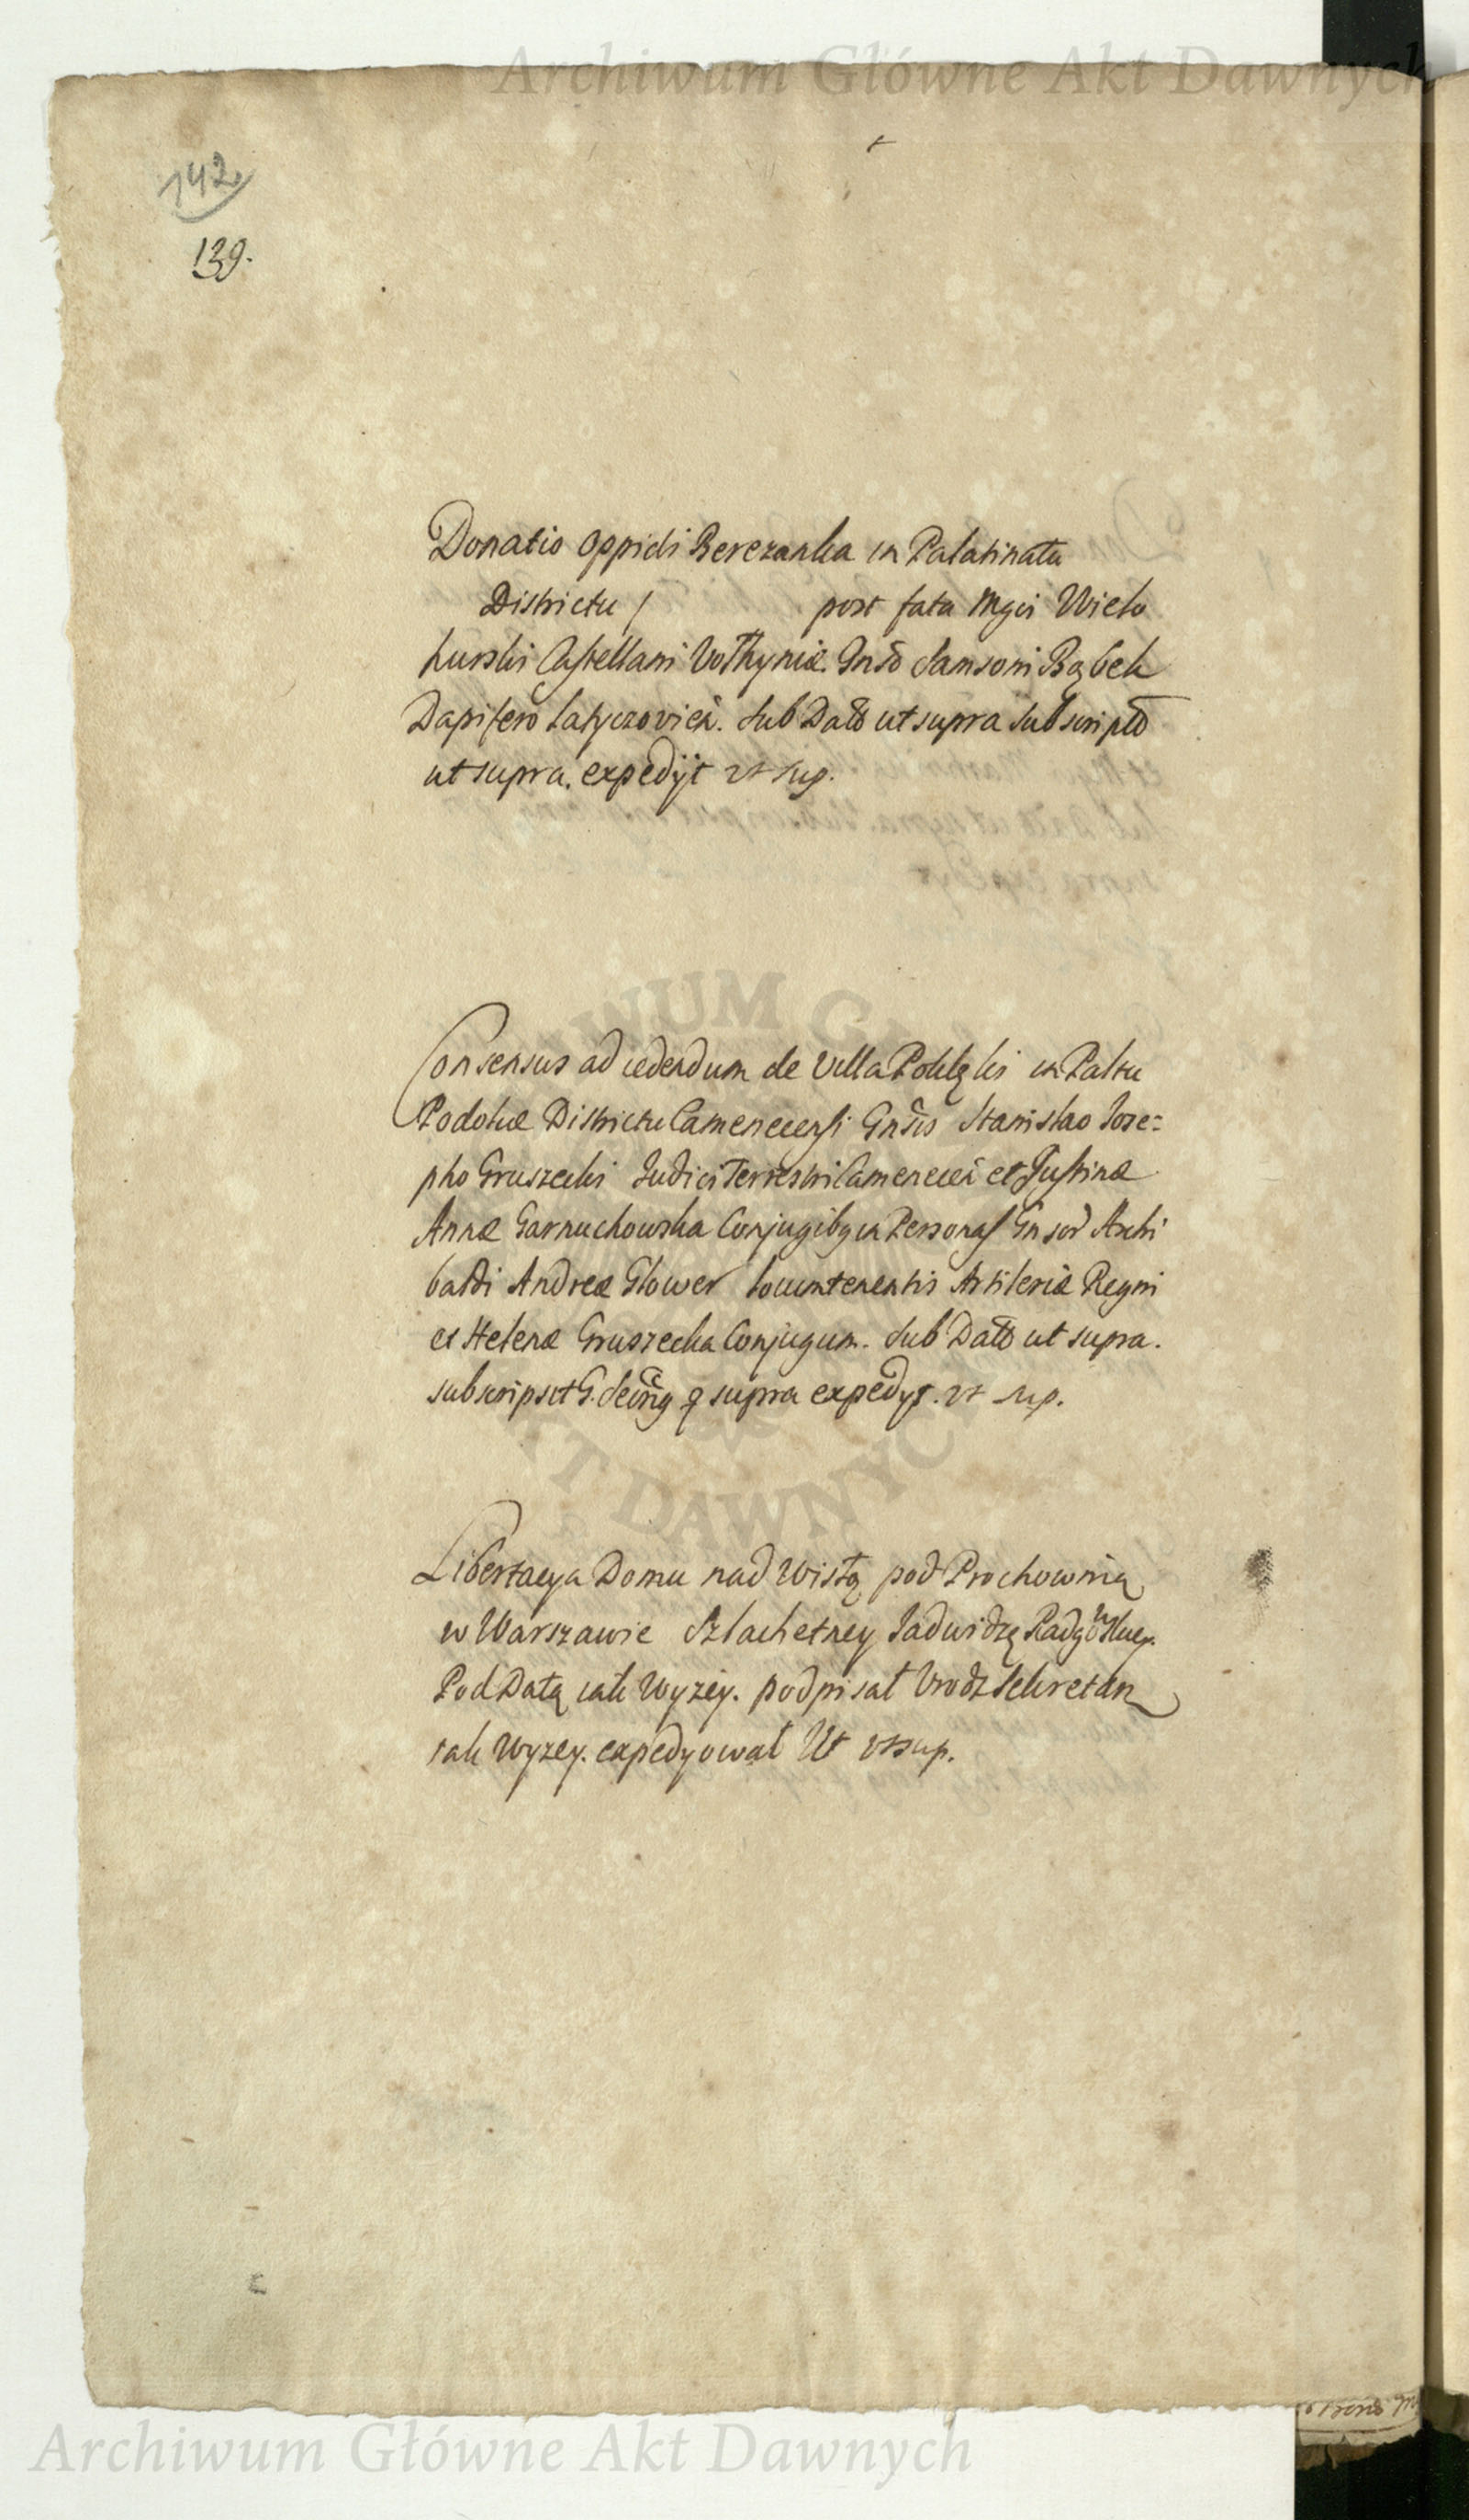 Archiwum Główne Akt Dawnych
142
139.
Donatio Oppidi Berezanka in Palatinatu
Districtu / post fata Mgci Wielo
hurski Castellani Vołhyniæ. Gnso Samsoni Bąbek
Dapifero Latyczovień. Sub Datt ut supra Subscript
ut supra. expedijt ut sup.
Consensus ad cedendum de Villa in Paltu
Podoliæ Districtu Camenecensi Gnsis Stanislao Jose=
pho Gruszecki Judici Terrestri Camenecen et Justinæ
Annæ Garnuchowska Conjugibg in Personas Gnsor Archi
baldi Andreæ Glower locumtenentis Artileriæ Regni
et Helenæ Gruszecka Conjugum. Sub Datt ut supra.
subscripsit G. q supra expedyt. ut sup.
Libertacya Domu nad Wisłą pod Prochownią
w Warszawie Szlachetney Jadwidzę
Pod Datą iak Wyzey. podpisał Urodz Sekretarz
iak Wyzey. expedyował Ut ut sup.
Archiwum Główne Akt Dawnych